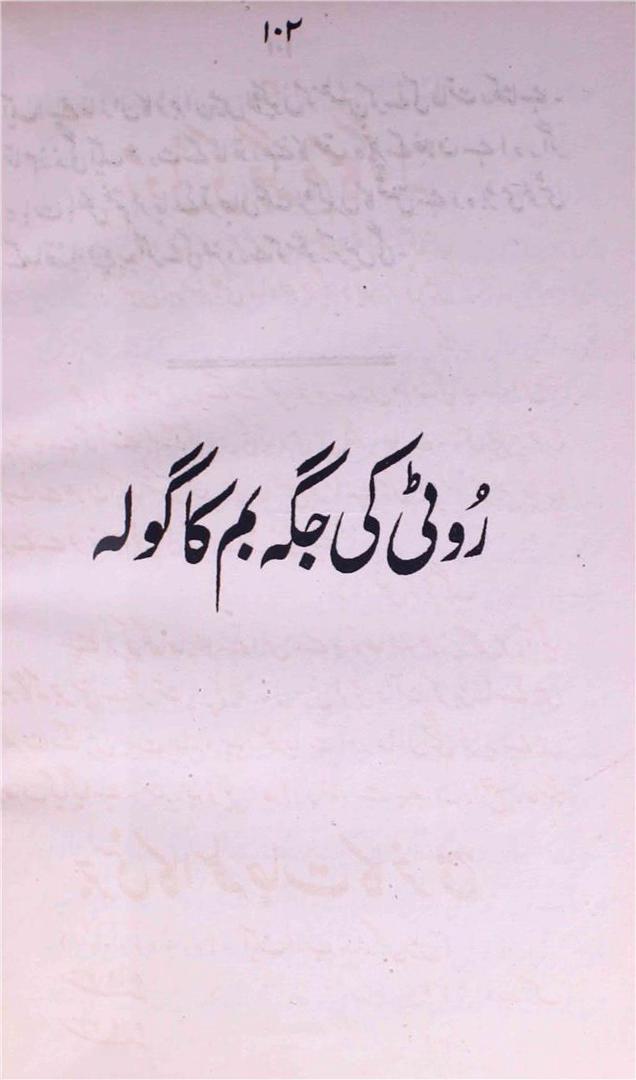 ۱۰۲
رُوٹی کی جگہ بم کا گولہ